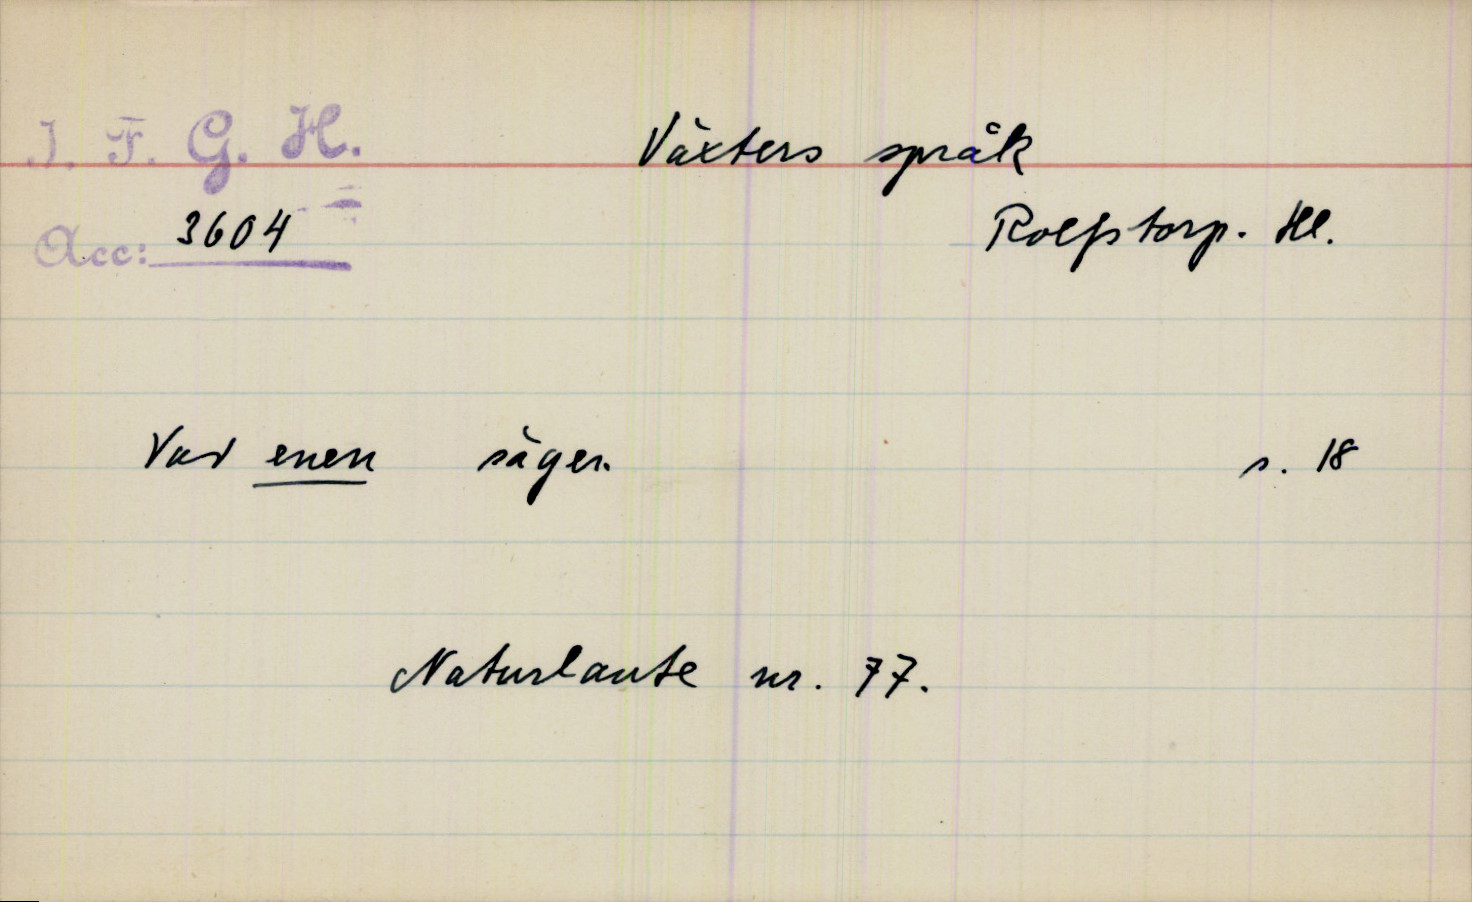 I. F. G. H.
Växters språk
Acc: 3604
Rolfstorp. Hl.
Vad enen säger. s. 18
Naturlaute nr. 77.